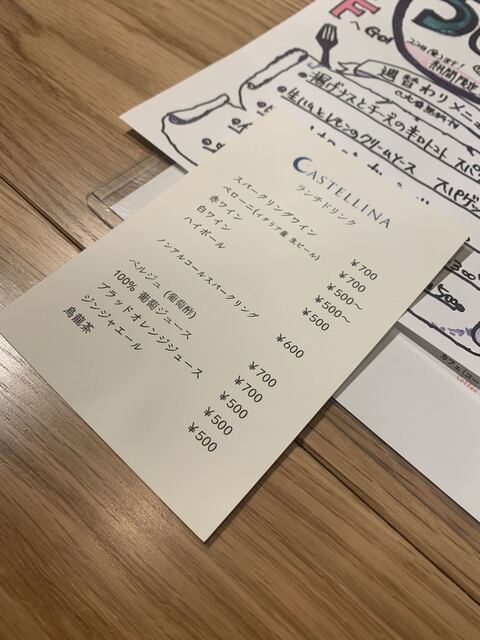 CASTELLINA
ランチドリンク
スパークリングワイン ¥700
ペローニ(イタリア産 生ビール) ¥700
赤ワイン ¥500～
白ワイン ¥500～
ハイボール ¥500
ノンアルコールスパークリング ¥600
ベルジュ (葡萄酢) ¥700
100% 葡萄ジュース ¥700
ブラッドオレンジジュース ¥500
ジンジャエール ¥500
烏龍茶 ¥500
へ Go!
期間限定
週替わりメニュ
大盛無料
•揚げナスとチーズの辛口トマト スパ
•生ハムとレモンのクリームソース スパゲッ